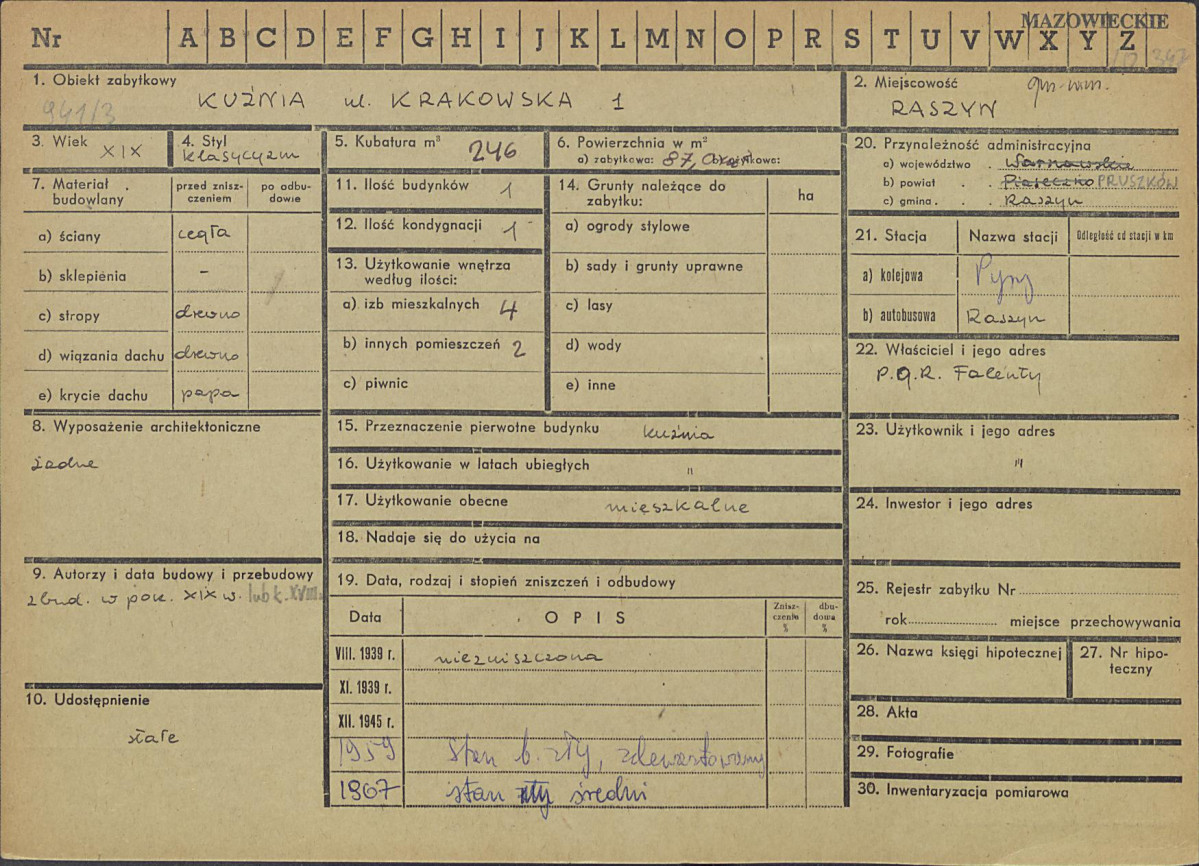 MAZOWIECKIE
Nr A B C D E F G H I J K L M N O P R S T U V W X Y Z
1. Obiekt zabytkowy
KUŹNIA ul. KRAKOWSKA 1
941/3
2. Miejscowość
RASZYN
3. Wiek XIX
4. Styl
klasycyzm
5. Kubatura m³ 246
6. Powierzchnia w m²
a) zabytkowa: 87,0
7. Materiał budowlany
przed zniszczeniem
po odbudowie
a) ściany cegła
b) sklepienia –
c) stropy drewno
d) wiązania dachu drewno
e) krycie dachu papa
8. Wyposażenie architektoniczne
żadne
9. Autorzy i data budowy i przebudowy
zbud. w poł. XIX w. lub k. XVIII.
10. Udostępnienie
stałe
11. Ilość budynków 1
12. Ilość kondygnacji 1
13. Użytkowanie wnętrza
według ilości:
a) izb mieszkalnych 4
b) innych pomieszczeń 2
c) piwnic
14. Grunty należące do
zabytku:
ha
a) ogrody stylowe
b) sady i grunty uprawne
c) lasy
d) wody
e) inne
15. Przeznaczenie pierwotne budynku kuźnia
16. Użytkowanie w latach ubiegłych "
17. Użytkowanie obecne mieszkalne
18. Nadaje się do użycia na
19. Data, rodzaj i stopień zniszczeń i odbudowy
Data OPIS Zniszczenie % dbudowa %
VIII. 1939 r. niezniszczona
XI. 1939 r.
XII. 1945 r.
1959 Stan b. zły, zdewastowany
1967 stan zły średni
20. Przynależność administracyjna
a) województwo . Warszawskie
b) powiat . . Piaseczno PRUSZKÓW
c) gmina . . Raszyn
21. Stacja Nazwa stacji Odległość od stacji w km
a) kolejowa Pyry
b) autobusowa Raszyn
22. Właściciel i jego adres
P.G.R. Falenty
23. Użytkownik i jego adres
"
24. Inwestor i jego adres
25. Rejestr zabytku Nr
rok miejsce przechowywania
26. Nazwa księgi hipotecznej
27. Nr hipoteczny
28. Akta
29. Fotografie
30. Inwentaryzacja pomiarowa